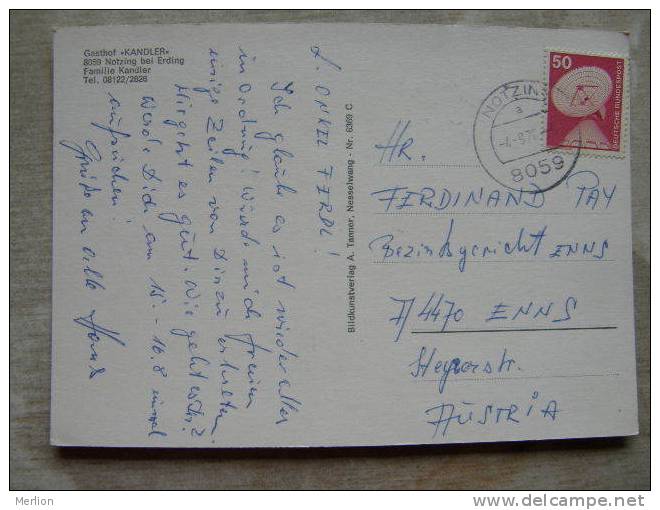 Gasthof »KANDLER«
8059 Notzing bei Erding
Familie Kandler
Tel. 08122/2826
L. ONKEL FERDL!
Ich glaube es ist wieder alles
in Ordnung! Würde mich freuen
einige Zeilen von Dir zu erhalten.
Mir geht es gut. Wie geht es Dir?
Werde Dich am 15. - 16.8 einmal
aufsuchen!
Hans
Bildkunstverlag A. Tanner, Nesselwang - Nr. 6309 C
50
DEUTSCHE BUNDESPOST
NOTZING
a
8059
HR.
FERDINAND PAY
Bezirksgericht ENNS
A/4470 ENNS
Steyrerstr.
AUSTRIA
Merlion
delcampe.net